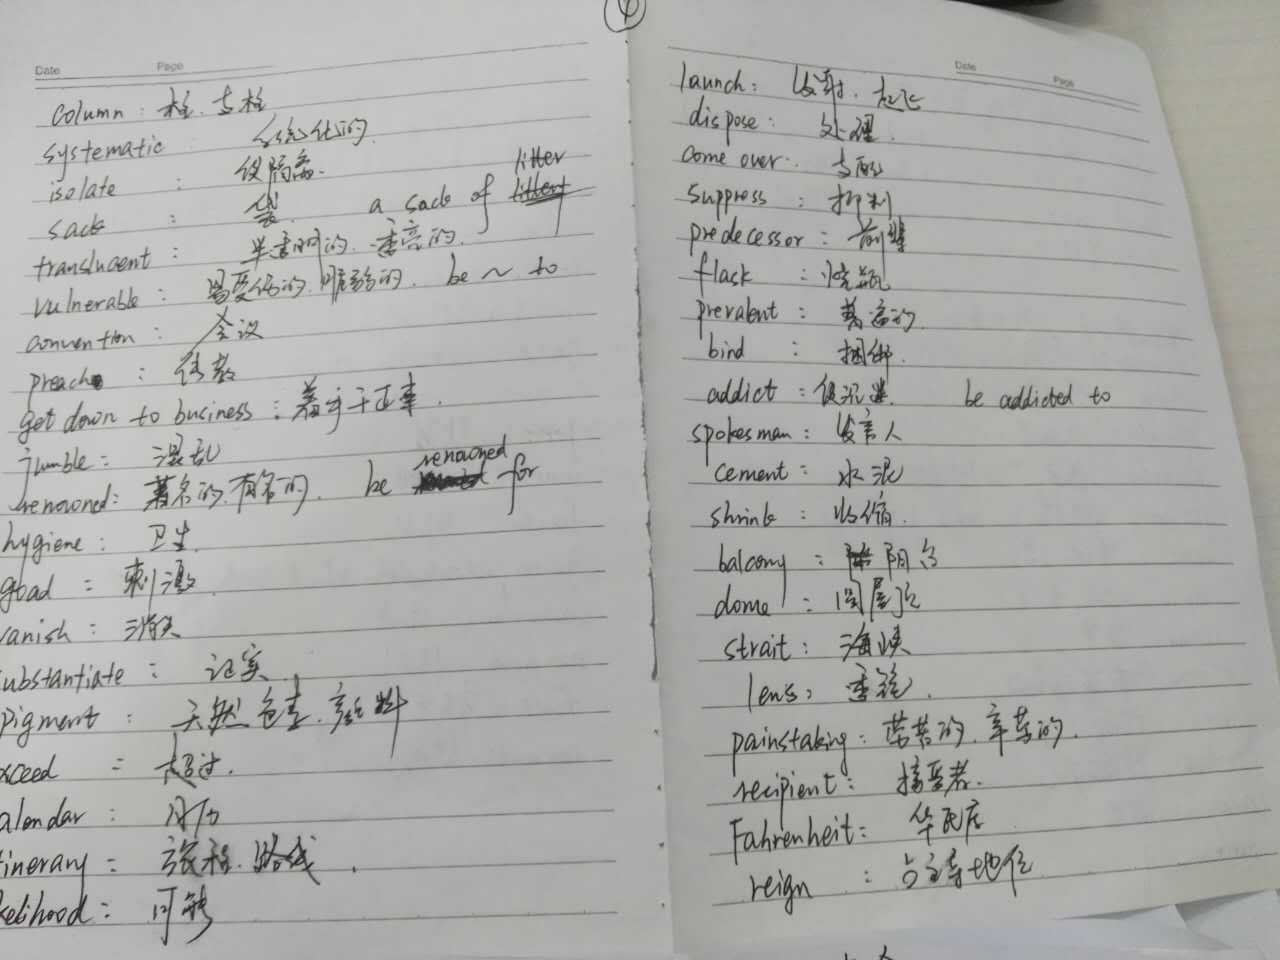 4
Date Page
column : 柱、支柱
systematic 系统化的
isolate : 使隔离.
sack : 袋. a sack of litter
translucent : 半透明的、透亮的.
vulnerable : 易受伤的、脆弱的. be ~ to
convention : 会议
preach : 传教
get down to business : 着手干正事.
jumble : 混乱
renowned : 著名的、有名的. be renowned for
hygiene : 卫生.
goad : 刺激
vanish : 消失
ubstantiate : 证实.
pigment : 天然色素、颜料
xceed : 超过.
alendar : 月历
tinerary : 旅程、路线.
kelihood : 可能
Date Page
launch : 发射、起飞
dispose : 处理.
come over : 支配
suppress : 抑制
predecessor : 前辈
flask : 烧瓶
prevalent : 普遍的.
bind : 捆绑.
addict : 使沉迷. be addicted to
spokesman : 发言人
cement : 水泥
shrink : 收缩.
balcony : 阳台
dome : 圆屋顶
strait : 海峡
lens : 透镜.
painstaking : 劳苦的、辛苦的.
recipient : 接受者.
Fahrenheit : 华氏度
reign : 占主导地位